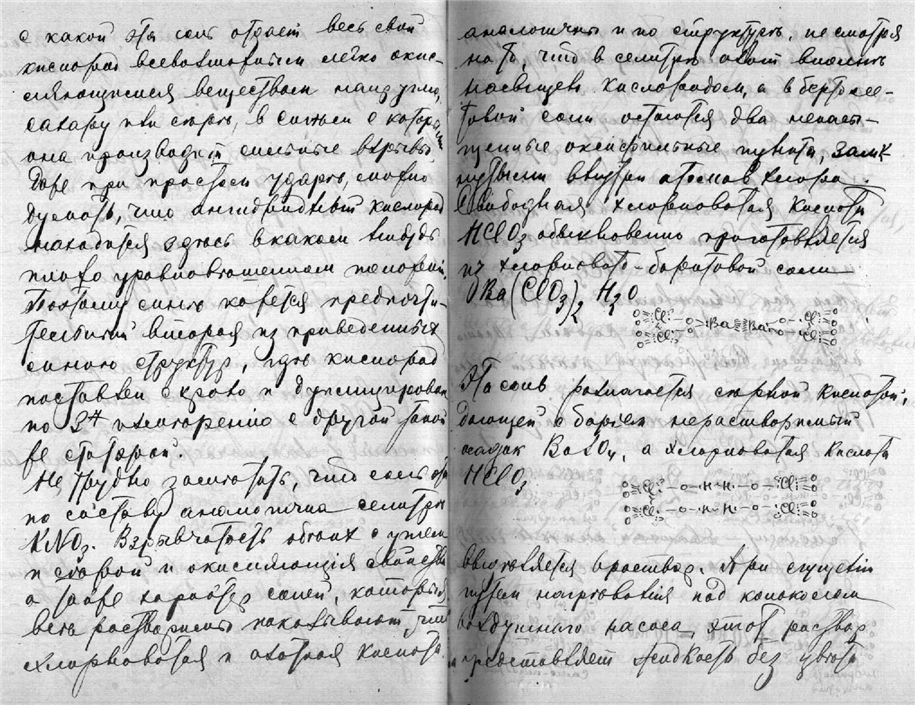 с какой эта соль отдает весь свой
кислород всевозможным легко окис-
ляющимся веществам напр. углю,
сахару или сере, в смеси с которы
она производит сильные взрывы
даже при простом ударе, можно
думать, что ангидридный кислород
находится здесь в каком нибудь
плохо уравновешенном положении.
Поэтому мною кажется предпочти-
тельной вторая из приведенных
мною структур, где кислород
поставлен
по 3му с другой такой
же стороной.
Не трудно заметить, что соль эта
по составу аналогична селитре
KNO₃. Взрывчатость обоих с углем
и серой и окисляющія свойства
а также характер солей, которыя
весь растворимы показывают, что
хлорноватая и азотная кислоты
аналогичны и по структуре, не смотря
на то, что в селитре азот вполне
насыщен кислородом, а в бертоле-
товой соли остаются два ненасы-
щенные пункта, замк
нутыми внутри атомов хлора.
Свободная хлорноватая кислота
HClO₃ обыкновенно приготовляется
из хлорновато-баритовой соли
Ba(ClO₃)₂ H₂O
Cl – o – Ba Ba – o – Cl
Cl Cl
Эта соль разлагается серной кислотой,
дающей с барием нерастворимый
осадок BaSO₄, а хлорноватая кислота
HClO₃
Cl – o – H · H – o – Cl
Cl – o – H · H – o – Cl
выделяется в раствор. При сгущении
путем нагревания под колоколом
воздушнаго насоса, этот раствор
представляет жидкость без цвета